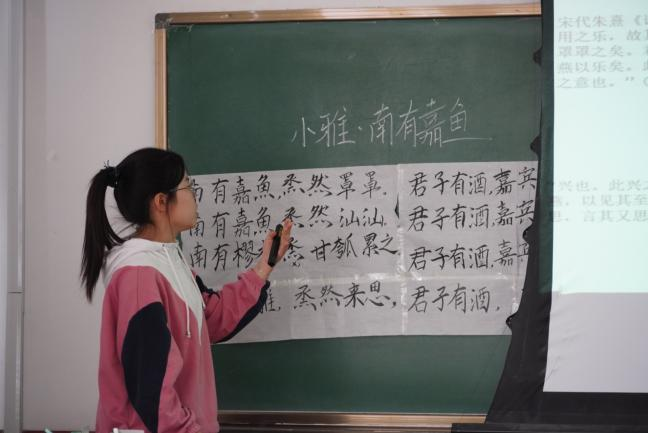 小雅·南有嘉鱼
南有嘉魚,烝然罩罩,君子有酒,嘉宾
南有嘉魚,烝然汕汕,君子有酒,嘉宾
南有樛 甘瓠累之 君子有酒,嘉宾
烝然来思,君子有酒,
宋代朱熹《
用之乐。故其
罩罩之矣。
燕以乐矣。
之意也。”
兴也。此兴之
以见其至
言其又思